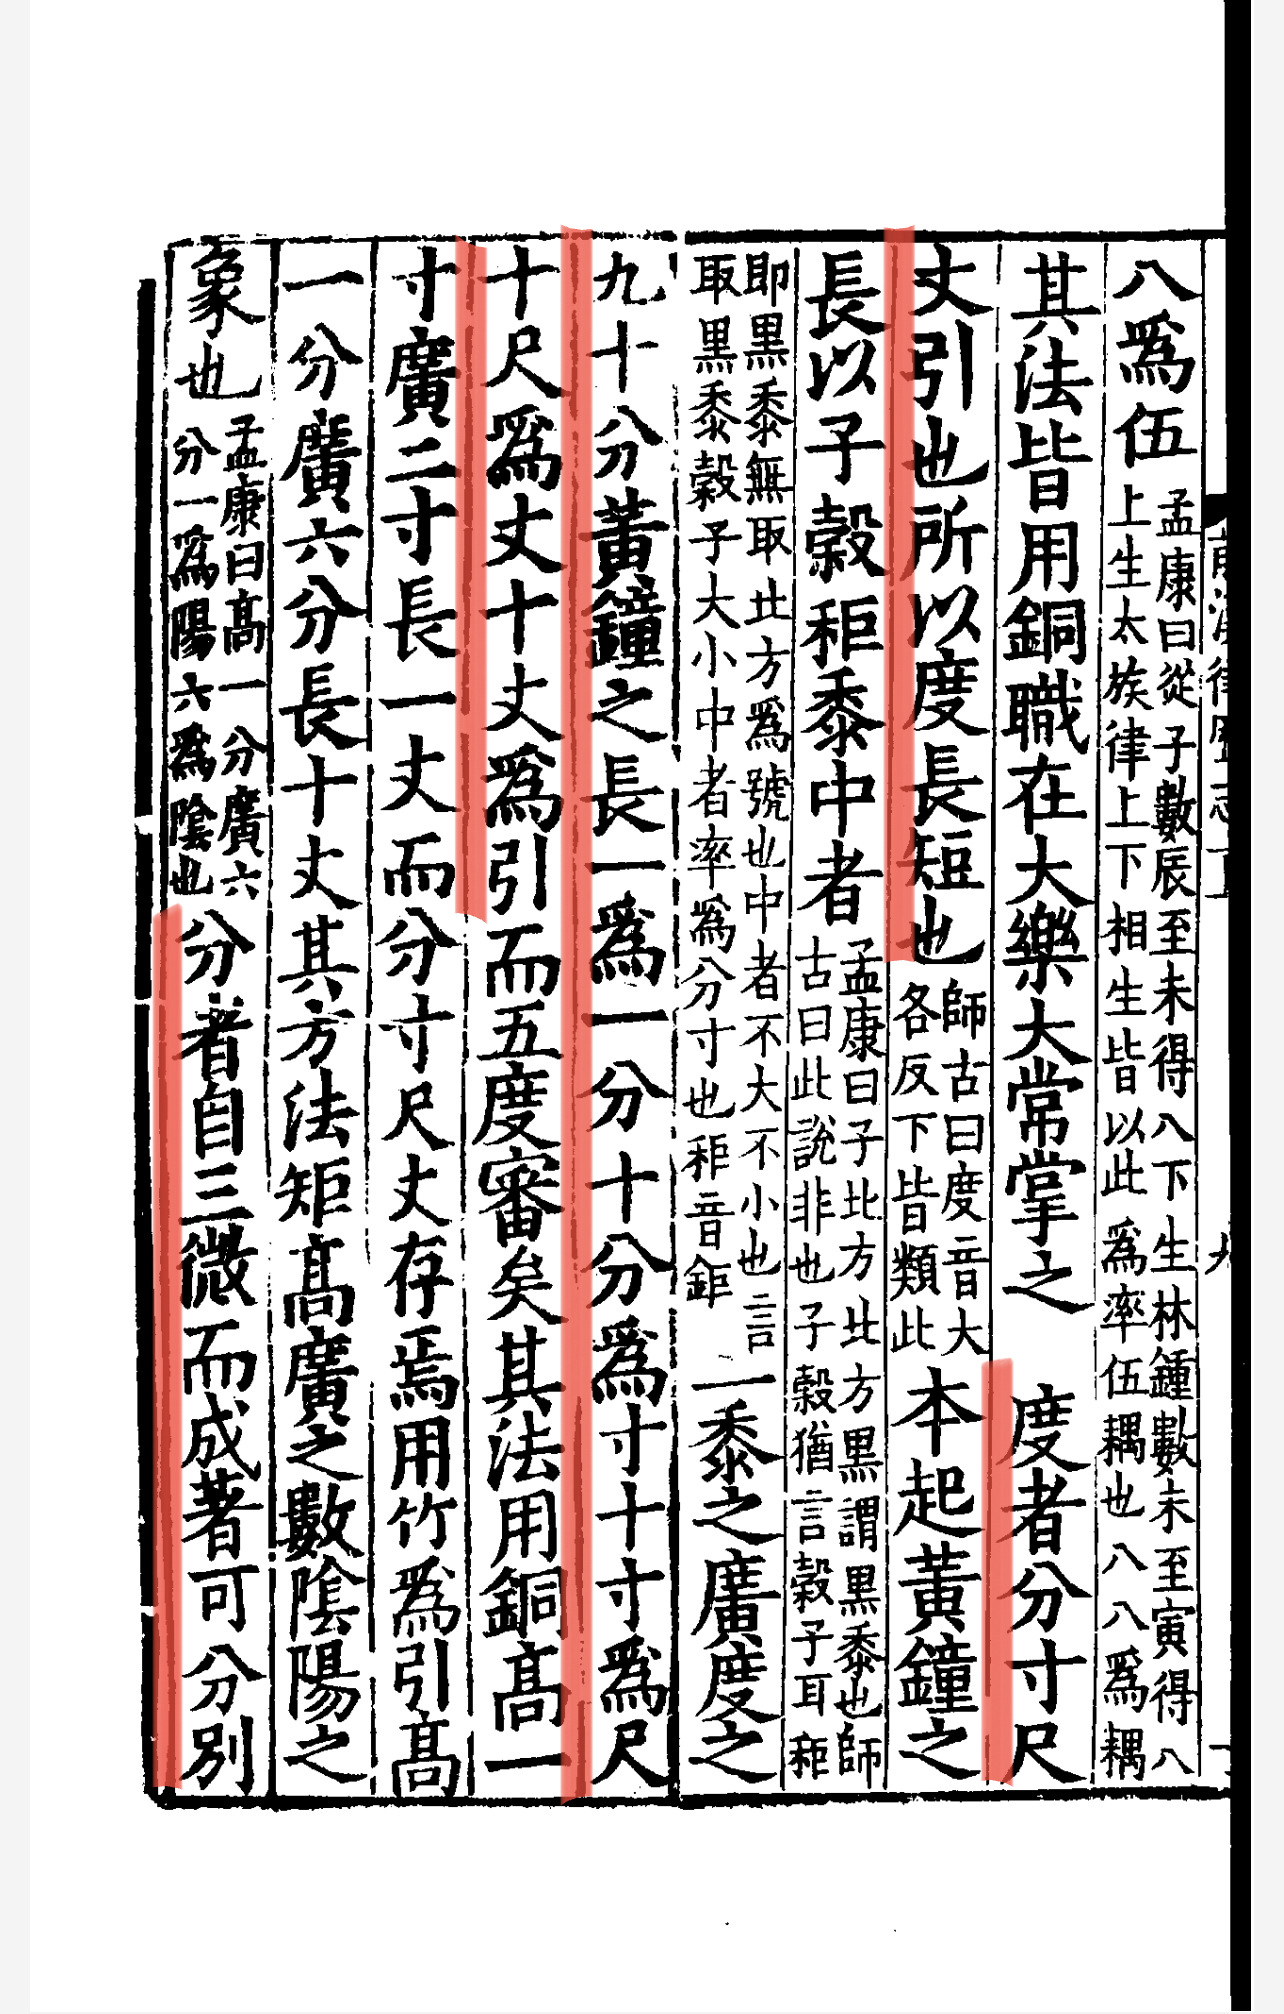 八爲伍
孟康曰從子數辰至未得八下生林鍾數未至寅得八
上生太族律上下相生皆以此爲率伍耦也八八爲耦
其法皆用銅職在大樂大常掌之
度者分寸尺
丈引也所以度長短也
師古曰度音大
各反下皆類此
本起黃鐘之
長以子穀秬黍中者
孟康曰子北方北方黑謂黑黍也師
古曰此說非也子穀猶言穀子耳秬
即黑黍無取北方爲號也中者不大不小也言
取黑黍穀子大小中者率爲分寸也秬音鉅
一黍之廣度之
九十分黃鐘之長一爲一分十分爲寸十寸爲尺
十尺爲丈十丈爲引而五度審矣其法用銅高一
寸廣二寸長一丈而分寸尺丈存焉用竹爲引高
一分廣六分長十丈其方法矩高廣之數陰陽之
象也
孟康曰高一分廣六
分一爲陽六爲陰也
分者自三微而成著可分別